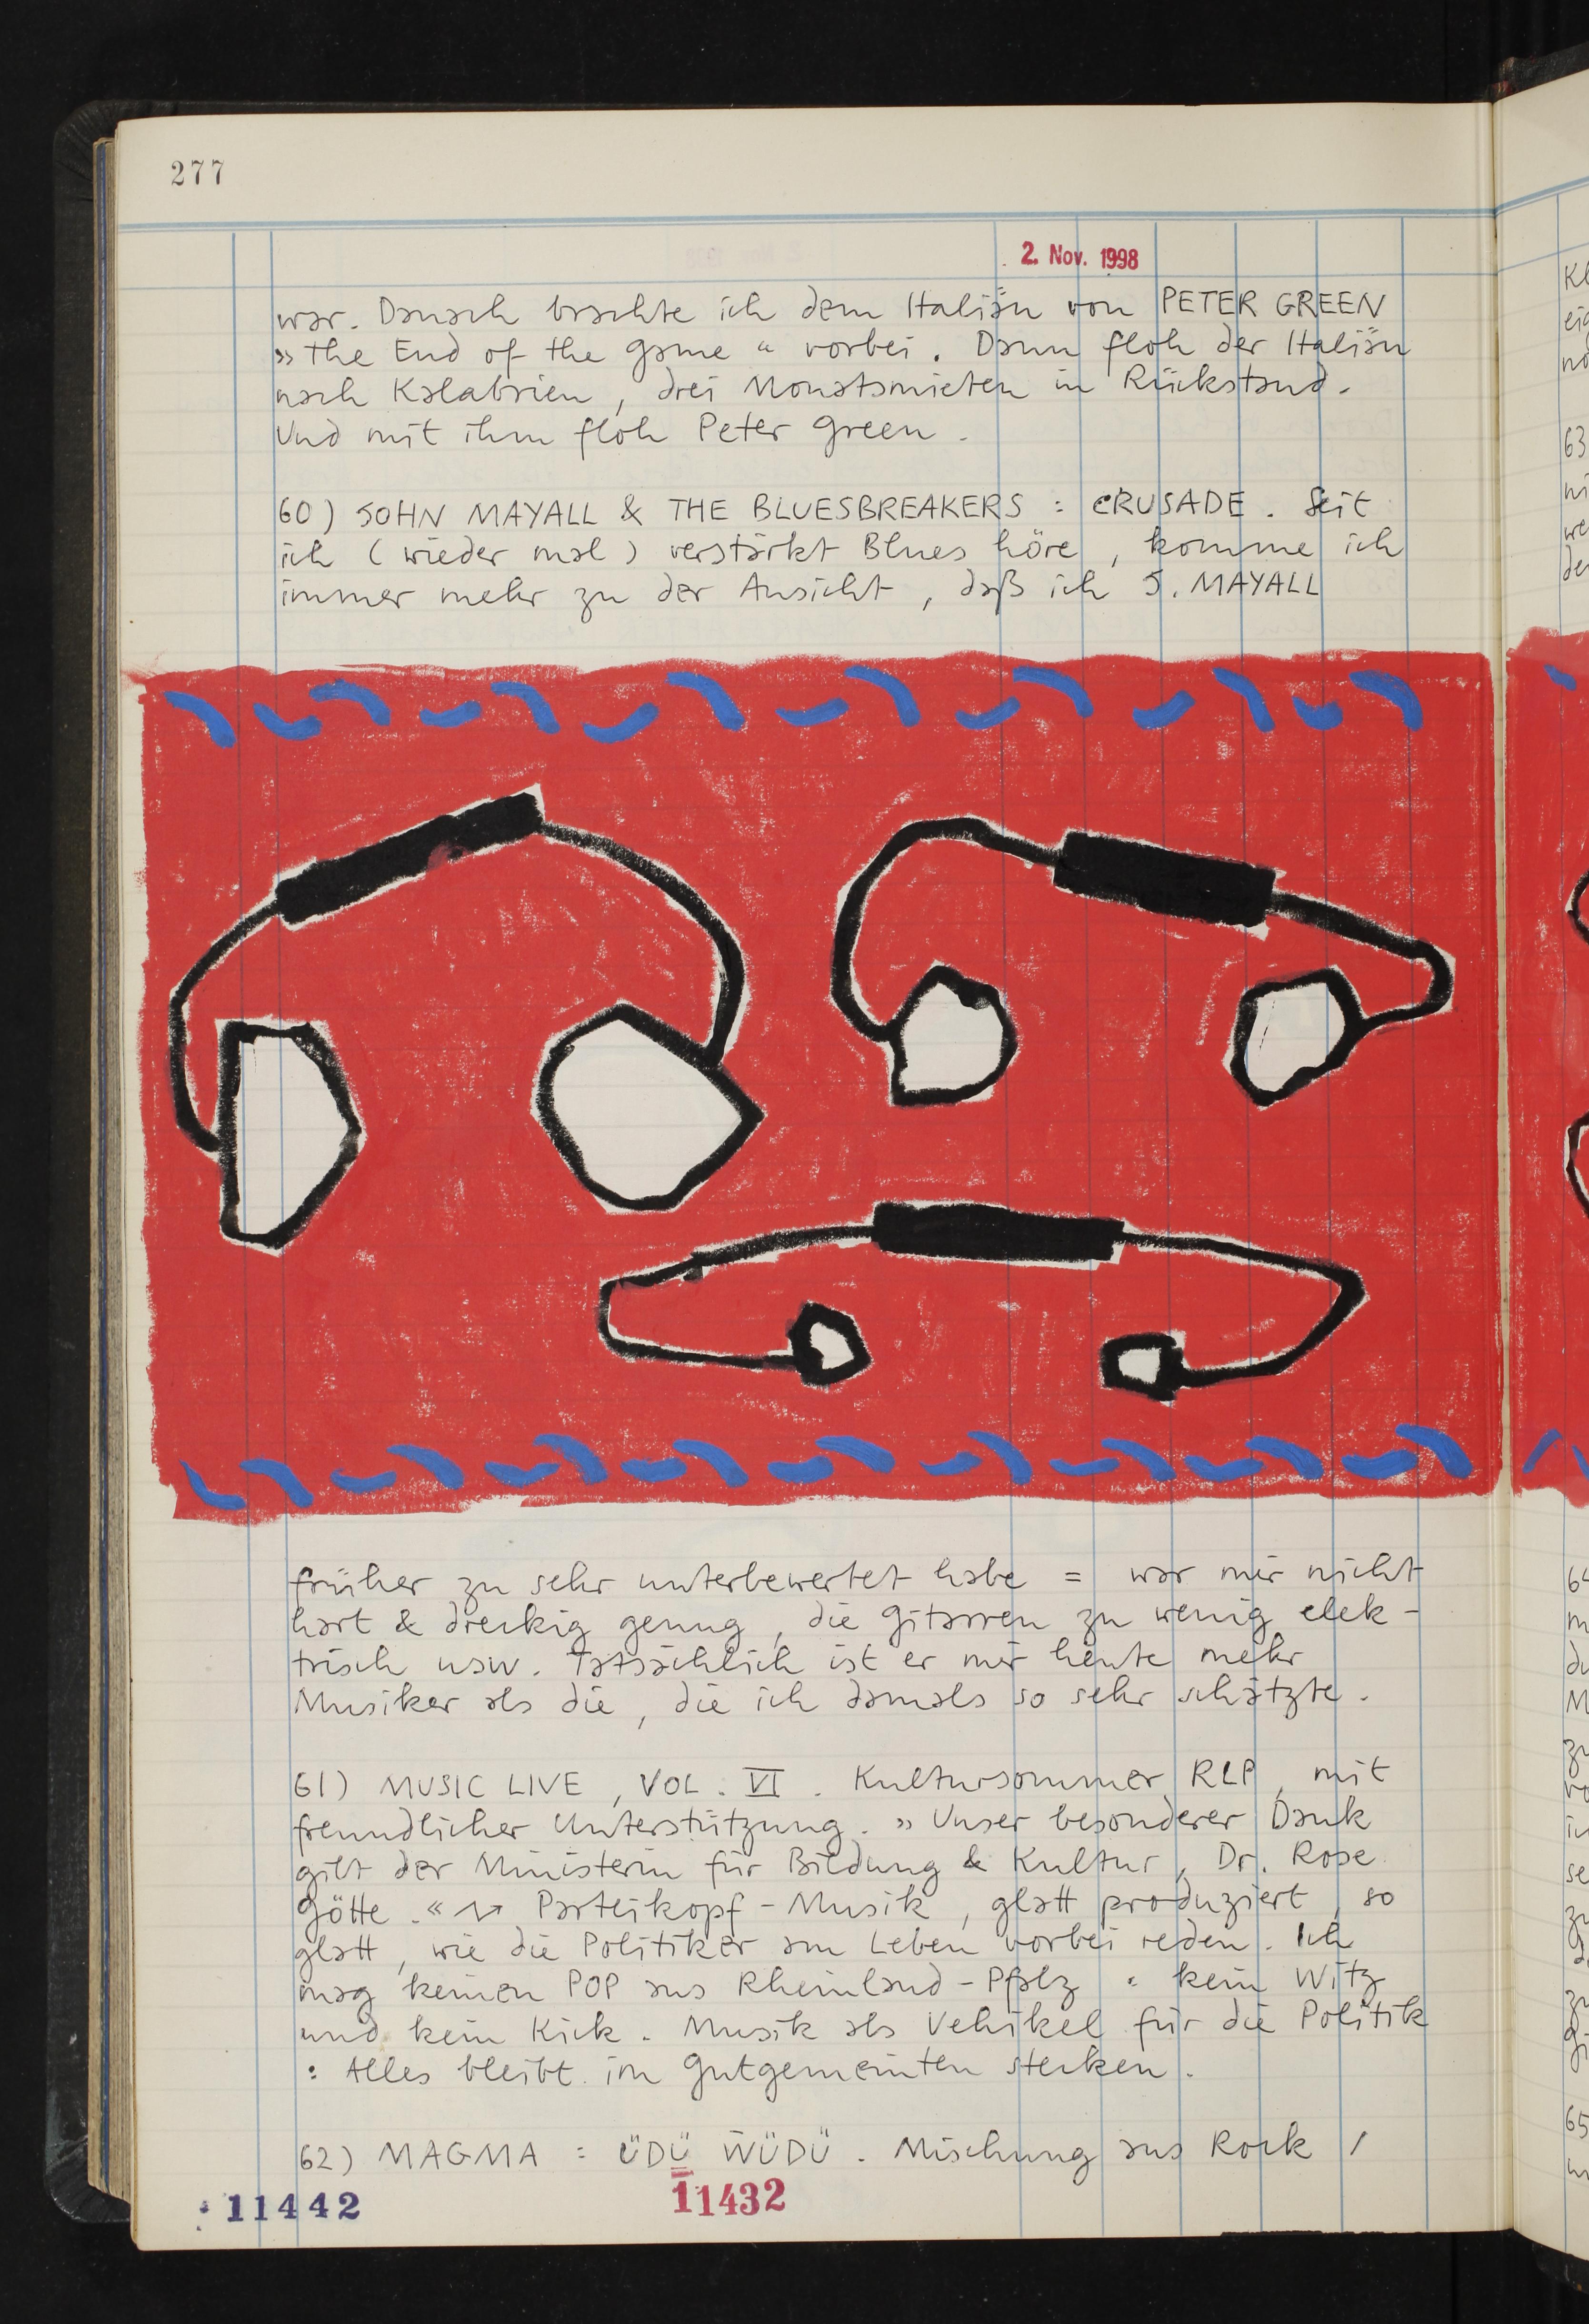 277
2. Nov. 1998
war. Danach brachte ich dem Italiän von PETER GREEN
»the End of the game« vorbei. Dann floh der Italiän
nach Kalabrien, drei Monatsmieten in Rückstand.
Und mit ihm floh Peter Green.
60) JOHN MAYALL & THE BLUESBREAKERS : CRUSADE. Seit
ich (wieder mal) verstärkt Blues höre, komme ich
immer mehr zu der Ansicht, daß ich J. MAYALL
früher zu sehr unterbewertet habe = war mir nicht
hart & dreckig genug, die Gitarren zu wenig elek-
trisch usw. Tatsächlich ist er mir heute mehr
Musiker als die, die ich damals so sehr schätzte.
61) MUSIC LIVE, VOL. VI. Kultursommer RLP, mit
freundlicher Unterstützung. »Unser besonderer Dank
gilt der Ministerin für Bildung & Kultur, Dr. Rose
Götte.« Parteikopf-Musik, glatt produziert, so
glatt, wie die Politiker am Leben vorbei reden. Ich
mag keinen POP aus Rheinland-Pfalz : kein Witz
und kein Kick. Musik als Vehikel für die Politik
: Alles bleibt im Gutgemeinten stecken.
62) MAGMA : ÜDÜ WÜDÜ. Mischung aus Rock /
11442
11432